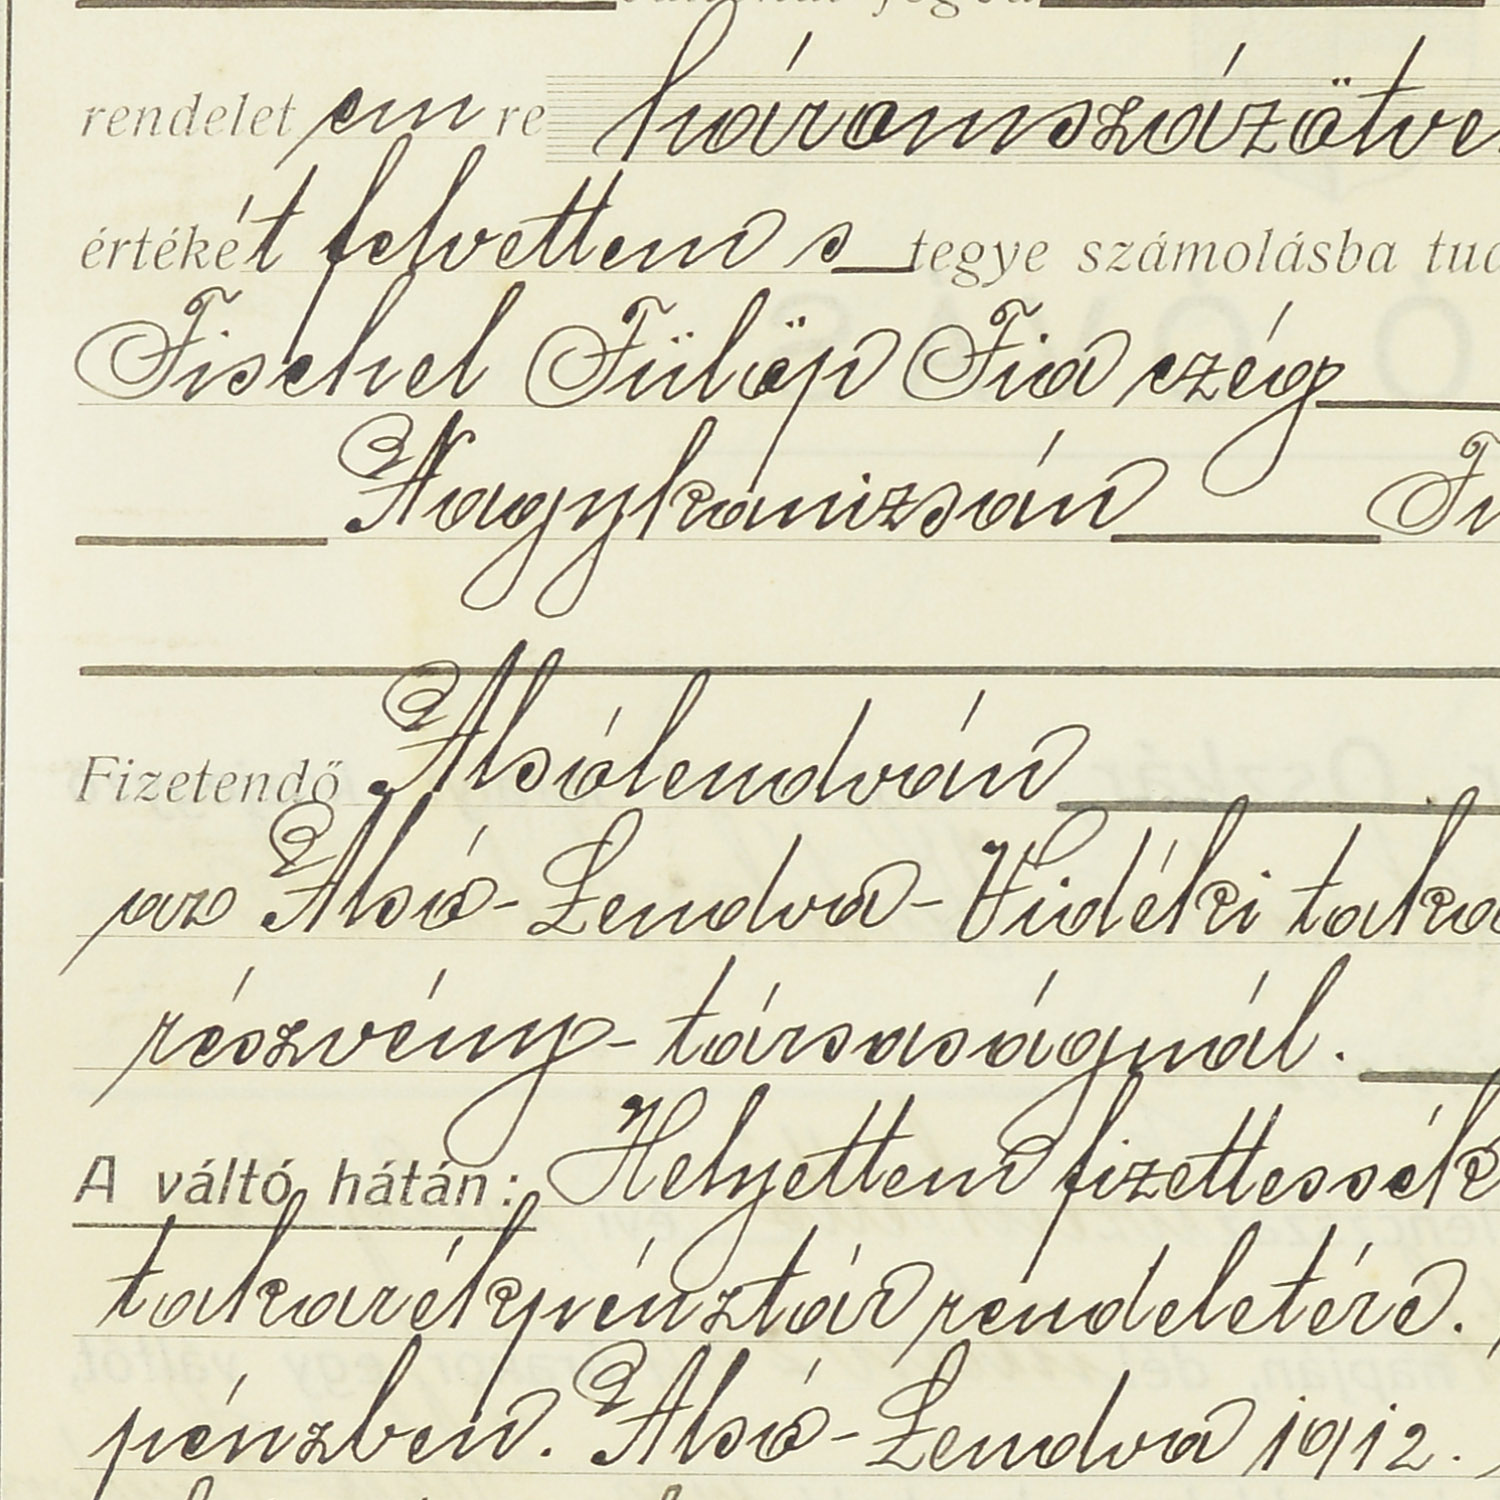 rendelet em re háromszázötve
értékét felvettem s tegye számolásba tud
Fischel Fülöp Fia czég
Nagykanizsán
Fizetendő Alsólendván
az Alsó-Lendva-Vidéki taka
részvény-társaságnál.
A váltó hátán: Helyettem fizettessék
takarékpénztár rendeletére.
pénzben. Alsó-Lendva 1912.